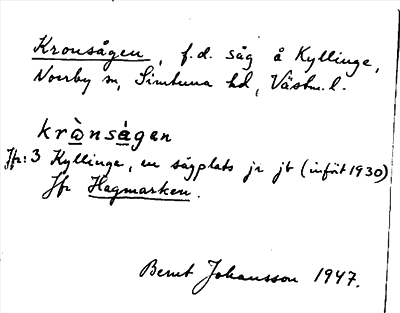 Kronsågen, f.d. såg å Kyllinge,
Norrby sn, Simtuna hd, Västm. l.
krònságen
Jfr: 3 Kyllinge, en sågplats jr jb (inföt 1930)
Jfr Hagmarken.
Bernt Johansson 1947.